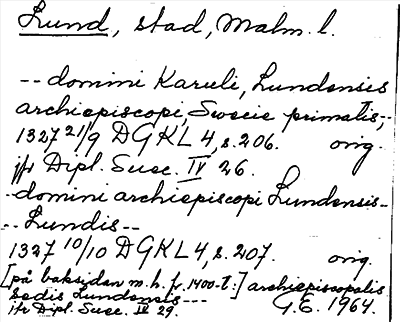 Lund, stad, Malm. l.
-- domini Karuli, Lundensis
archiepiscopi, Swecie primatis,-
1327 21/9 DGKL 4, s. 206. orig.
jfr Dipl. Suec. IV 26.
- domini archiepiscopi Lundensis -
-- Lundis --
1327 10/10 DGKL 4, s. 207. orig.
[på baksidan m. h. fr. 1400-t.:] archiepiscopalis
sedis Lundensis ---
jfr Dipl. Suec. IV 29. G.E. 1964.